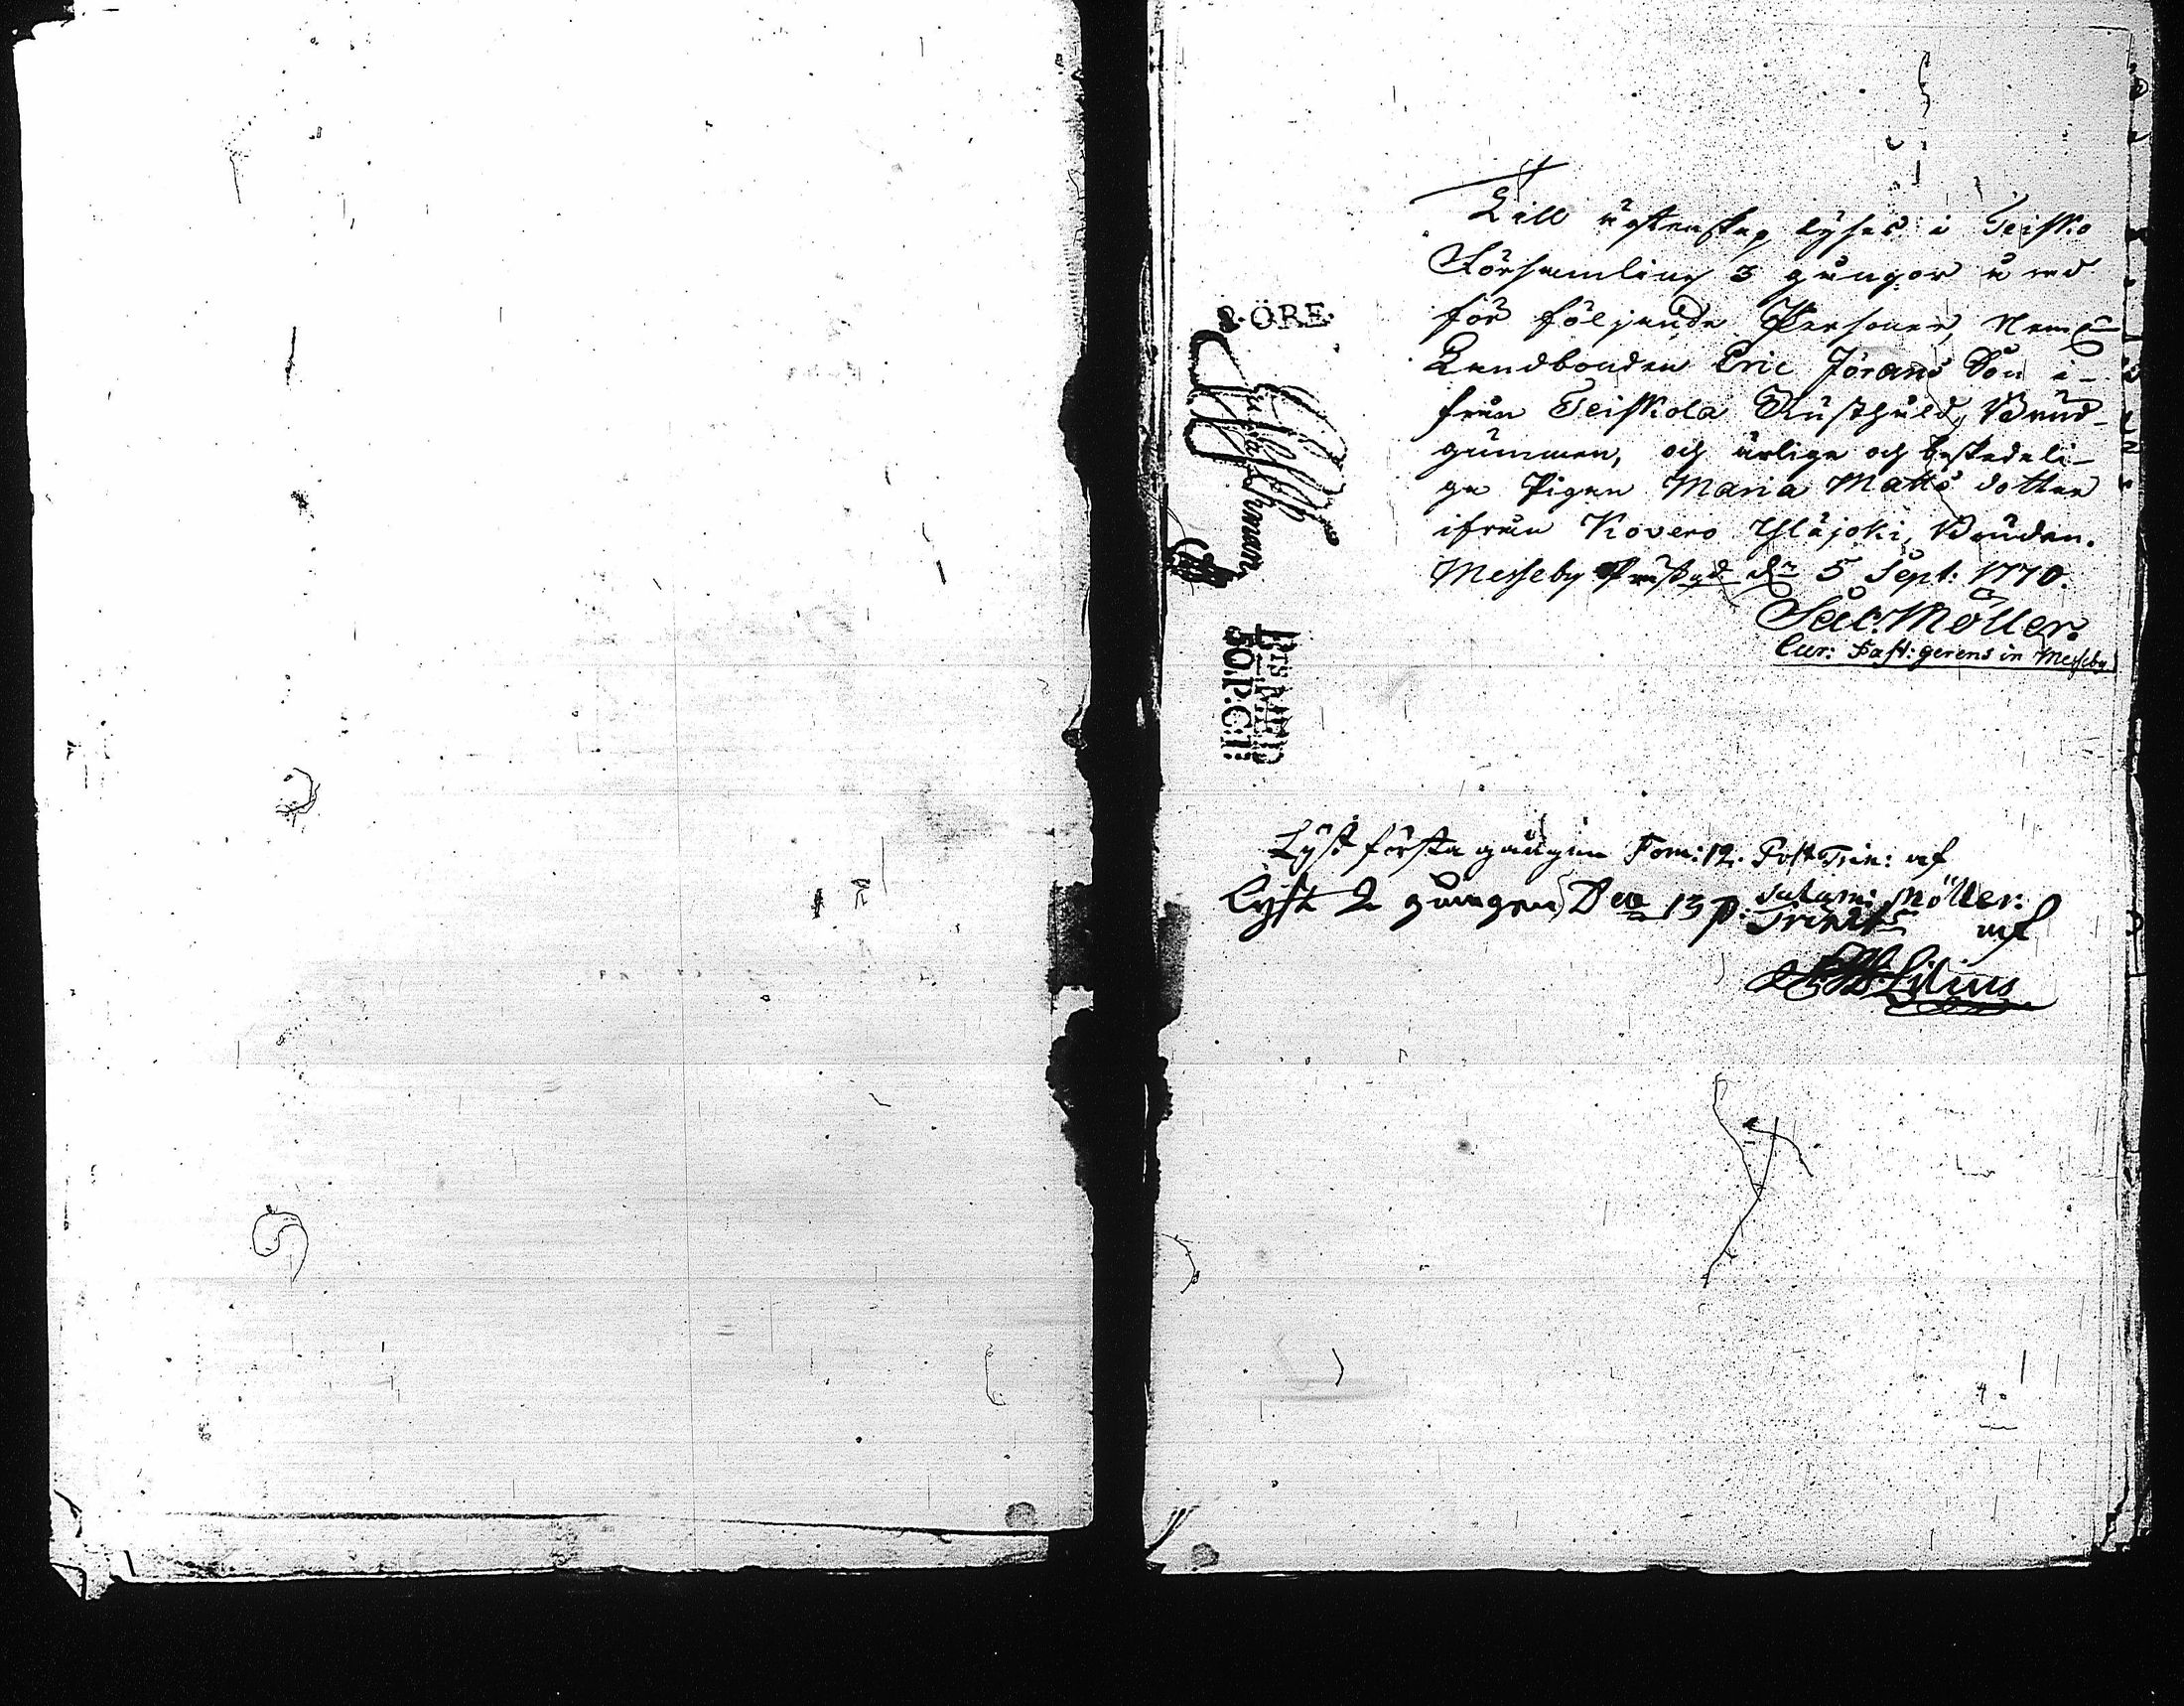 Till ägtenskap lyses i Teisko
Församling 3 gånger å rad
för följande Personer, Neml:
Landbonden Eric Jörans Son i-
från Teiskola Rusthåld, Brud-
gummen, och ärliga och beskedeli-
ga Pigan Maria Matts dotter
ifrån Kovero Yläjoki, Bruden.
Messeby Prästgd dn 5 Sept: 1770.
Sal. Möller.
Cur: Past: gerens in Messeby.
2. ÖRE.
50.P:C:T:
Lyst första gången Dom: 12. Post Trin: af
Salom: Möller:
Lyst 2 gången Dca 13 p: Trinit: af
Lilius